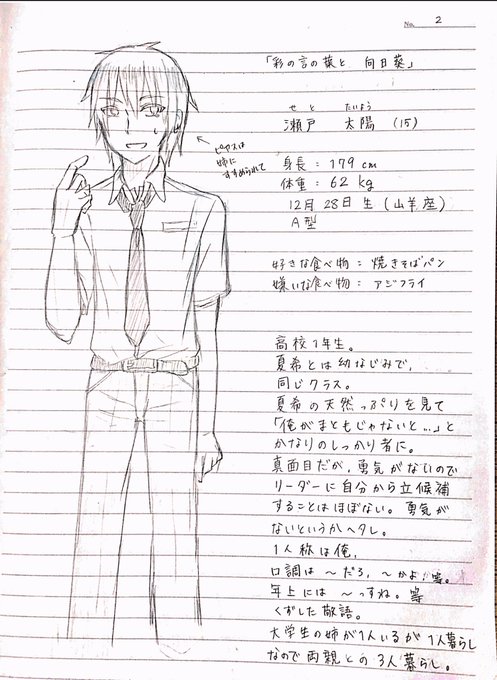 No. 2
「彩の言の葉と 向日葵」
せと たいよう
瀬戸 太陽 (15)
ピアスは
姉に
すすめられて
身長 : 179 cm
体重 : 62 kg
12月 28日 生 (山羊座)
A型
好きな食べ物 : 焼きそばパン
嫌いな食べ物 : アジフライ
高校1年生。
夏希とは幼なじみで、
同じクラス。
夏希の天然っぷりを見て
「俺がまともじゃないと…」と
かなりのしっかり者に。
真面目だが、勇気がないので
リーダーに自分から立候補
することはほぼない。勇気が
ないというかヘタレ。
1人称は俺。
口調は 〜だろ、〜かよ! 等。
年上には 〜っすね。等
くずした敬語。
大学生の姉が1人いるが 1人暮らし
なので両親との 3人暮らし。